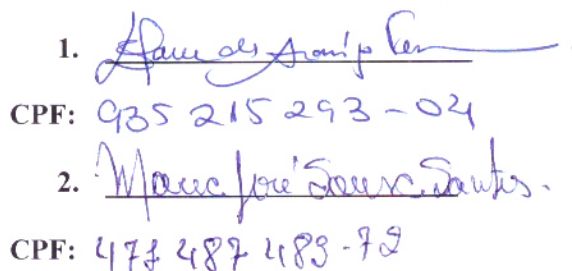 1. de Araújo
CPF: 935 215 293 - 04
2. Maria José Sousa Santos.
CPF: 477 487 483 - 72